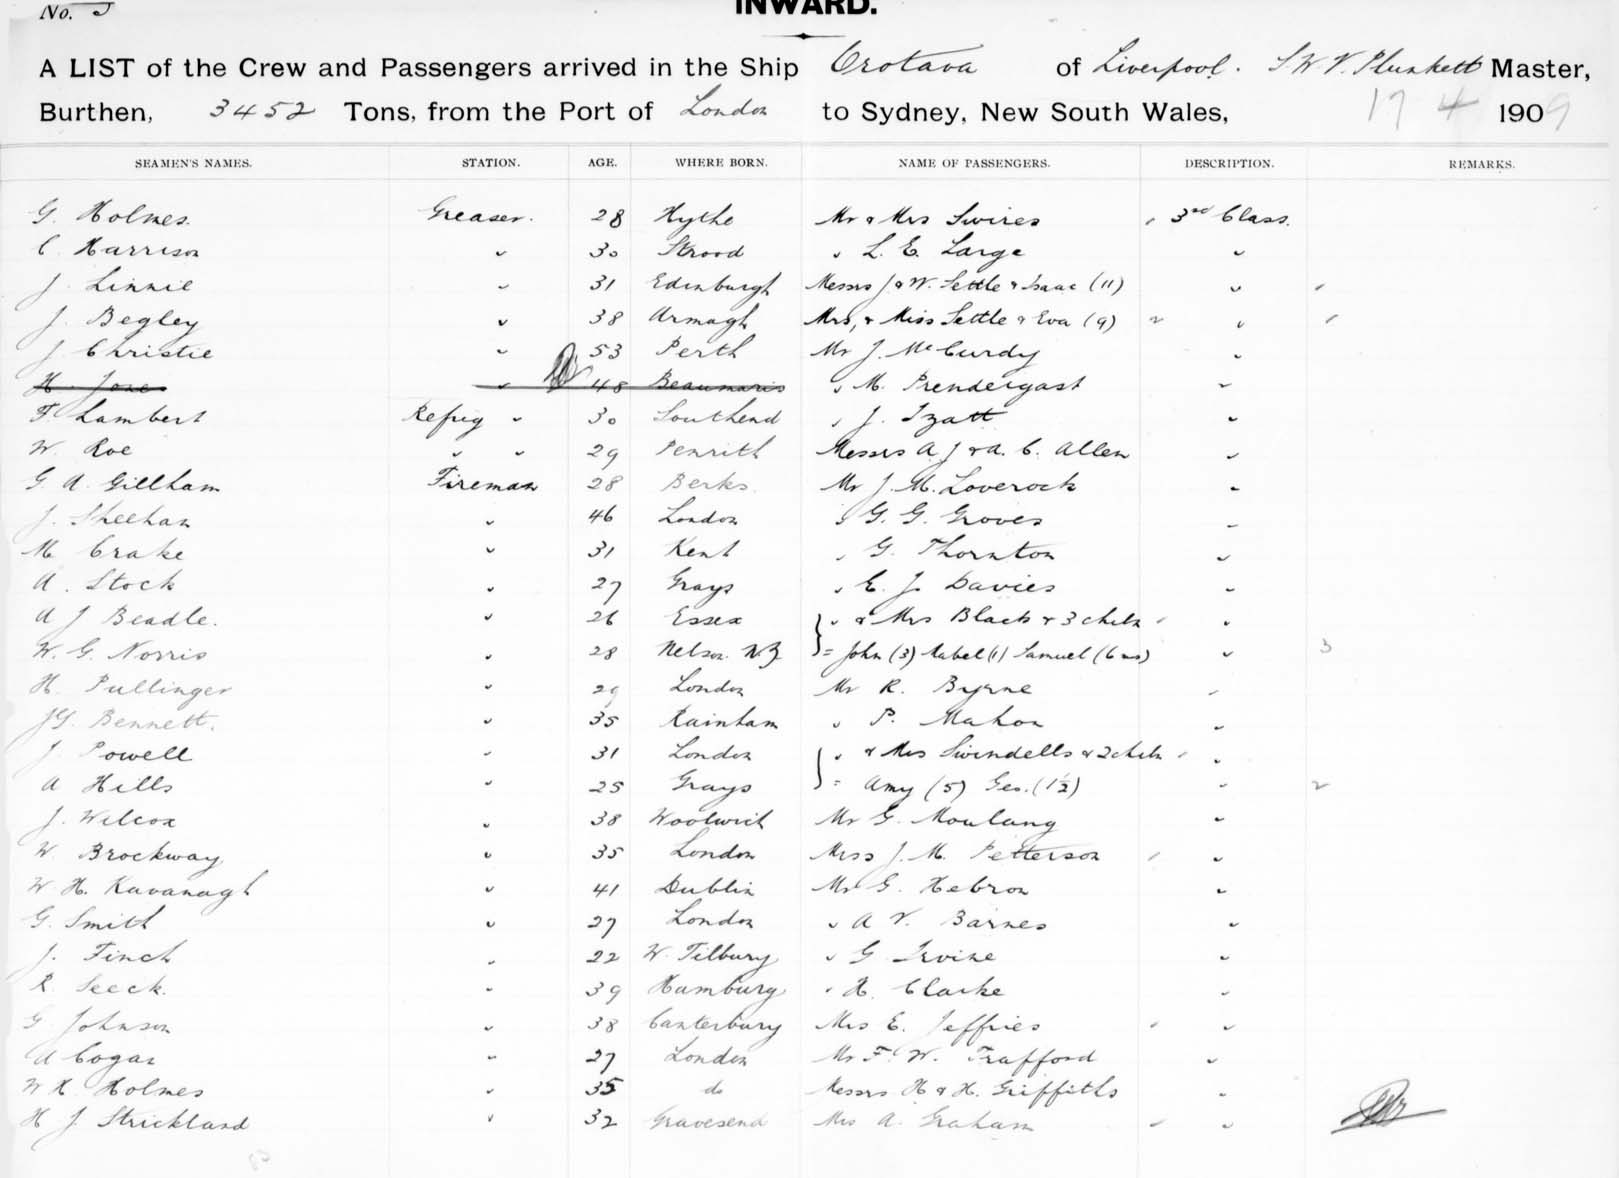 No. 5
INWARD.
A LIST of the Crew and Passengers arrived in the Ship Orotava of Liverpool. S.W.V. Plunkett Master,
Burthen, 3452 Tons, from the Port of London to Sydney, New South Wales, 17 4 1909
SEAMEN'S NAMES. STATION. AGE. WHERE BORN. NAME OF PASSENGERS. DESCRIPTION. REMARKS.
G. Holmes. Greaser. 28 Hythe Mr & Mrs Swires 3rd Class.
C. Harrison " 30 Strood " L. E. Large "
J. Linnie " 31 Edinburgh Messrs J & W. Settle & Isaac (11) "
J. Begley " 38 Armagh Mrs, & Miss Settle & Eva (9) 2 "
J. Christie " 53 Perth Mr J. McCurdy "
H. Jones " 48 Beaumaris " M. Prendergast "
F. Lambert Refrig " 30 Southend " J. Izatt "
W. Roe " " 29 Penrith Messrs A. J & A. C. Allen "
G. A. Gillham Fireman 28 Berks. Mr J. M. Loverock "
J. Sheehan " 46 London " G. G. Groves "
M. Crake " 31 Kent " G. Thornton "
A. Stock " 27 Grays " E. J. Davies "
A J Beadle. " 26 Essex " & Mrs Black & 3 chiln "
W. G. Norris " 28 Nelson N.Z = John (3) Mabel (1) Samuel (6 ms) " 3
H. Pullinger " 29 London Mr R. Byrne "
J.G. Bennett. " 35 Rainham " P. Mahon "
J. Powell " 31 London " & Mrs Swindells & 2 chiln "
A Hills " 25 Grays = Amy (5) Geo. (1½) " 2
J. Wilcox " 38 Woolwich Mr G. Moulang "
W. Brockway " 35 London Miss J. M. Petterson "
W. H. Kavanagh " 41 Dublin Mr G. Hebron "
G. Smith " 27 London " A V. Barnes "
J. Finch " 22 W. Tilbury " G. Irvine "
R. Seeck. " 39 Hamburg " H. Clarke "
G. Johnson " 38 Canterbury Mrs E. Jeffries "
A Cogan " 27 London Mr F. W. Trafford "
W H. Holmes " 35 do Messrs H & H. Griffiths "
H J. Strickland " 32 Gravesend Mrs A. Graham "